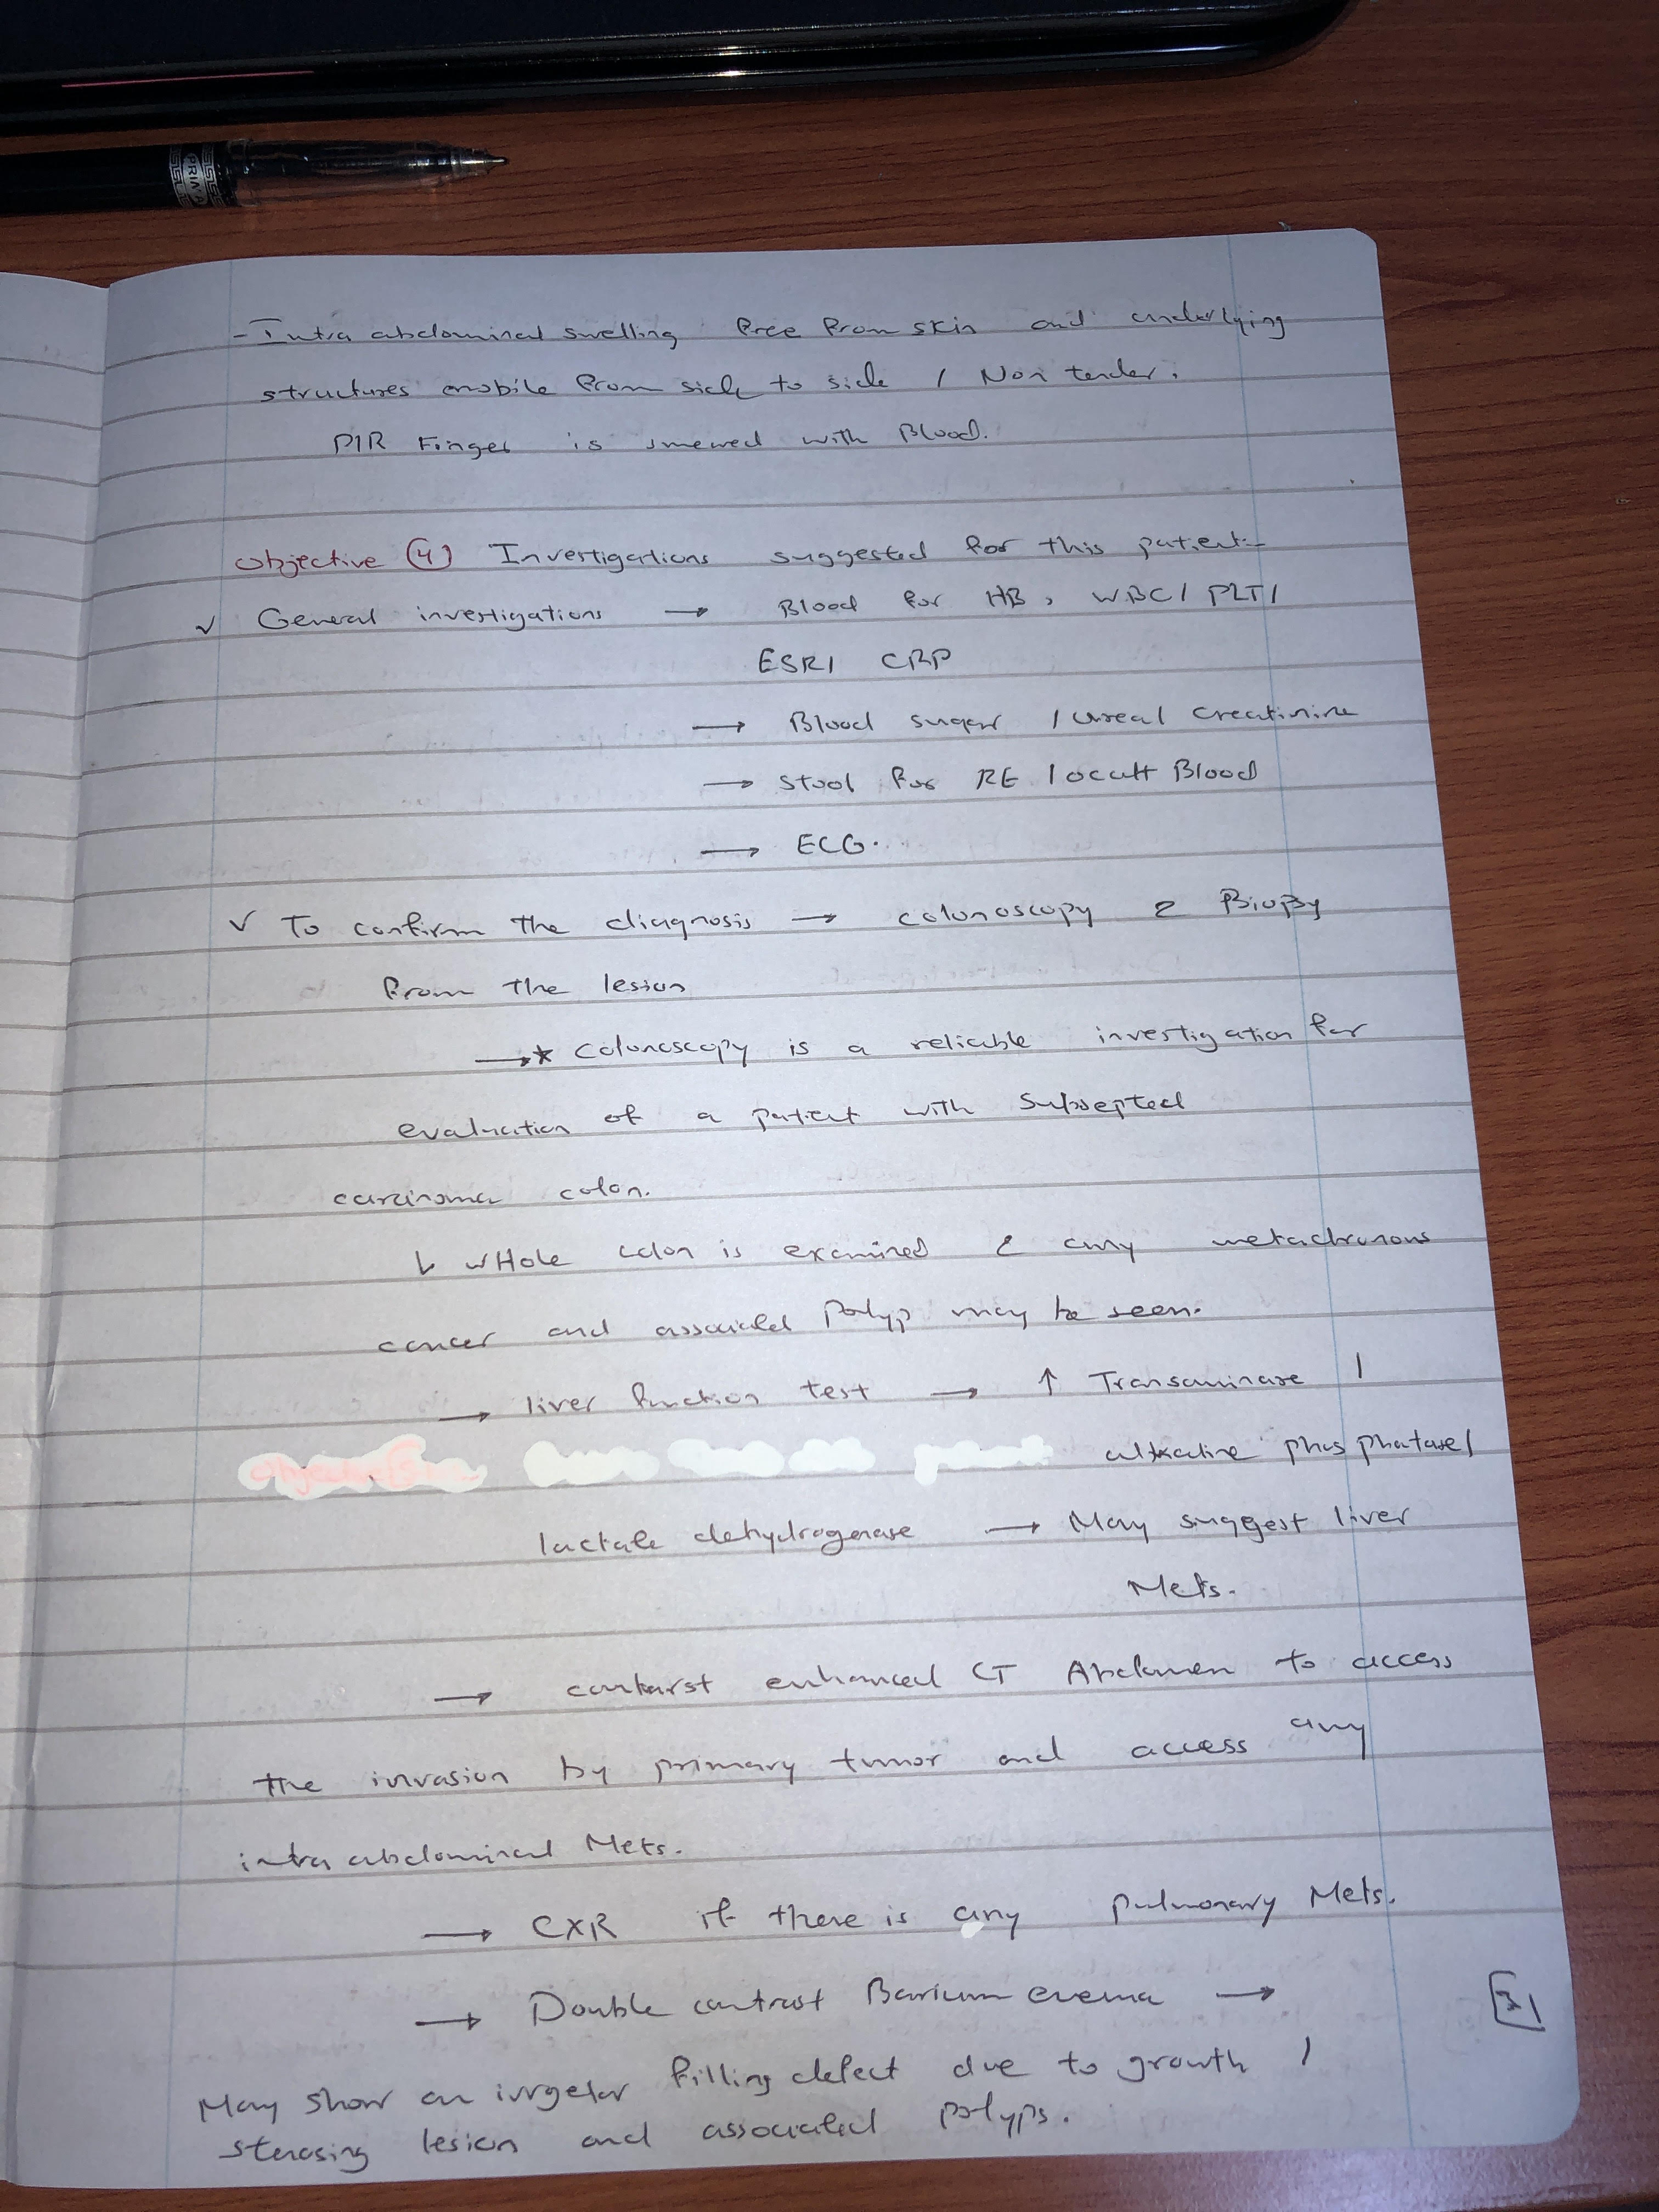 PRIMA
- Intra abdominal swelling free from skin and underlying
structures mobile from side to side / Non tender.
P/R Finger is smewed with Blood.
Objective (4) Investigations suggested for this patient:-
✓ General investigations → Blood for HB, WBC/ PLT/
ESR/ CRP
→ Blood suger / urea/ creatinine
→ stool for RE / occult Blood
→ ECG.
✓ To confirm the diagnosis → colonoscopy & Biopsy
from the lesion
→* Colonoscopy is a reliable investigation for
evaluation of a patient with Subsepted
carcinoma colon.
↳ wHole colon is examined & any metachronous
cancer and associated Polyp may be seen.
→ liver function test → ↑ Transaminase /
alkaline phosphatase/
lactate dehydrogenase → May suggest liver
Mets.
→ contarst enhanced CT Abdomen to access
the invasion by primary tumor and access any
intra abdominal Mets.
→ CXR if there is any pulmonary Mets.
→ Double contrast Barium enema →
May show an irrgelar filling defect due to growth /
stenosing lesion and associated polyps.